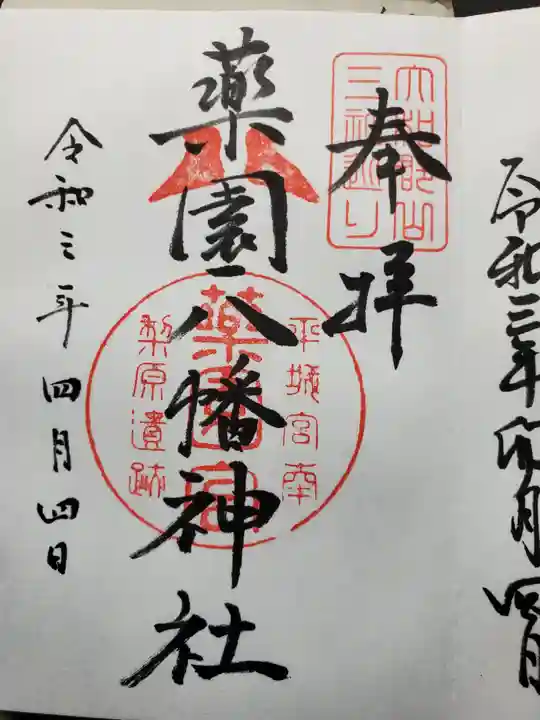 令和三年卯月四日
奉拝
大和郡山
三社巡り
薬園八幡神社
平城宮南
梨原遺跡
令和三年四月四日